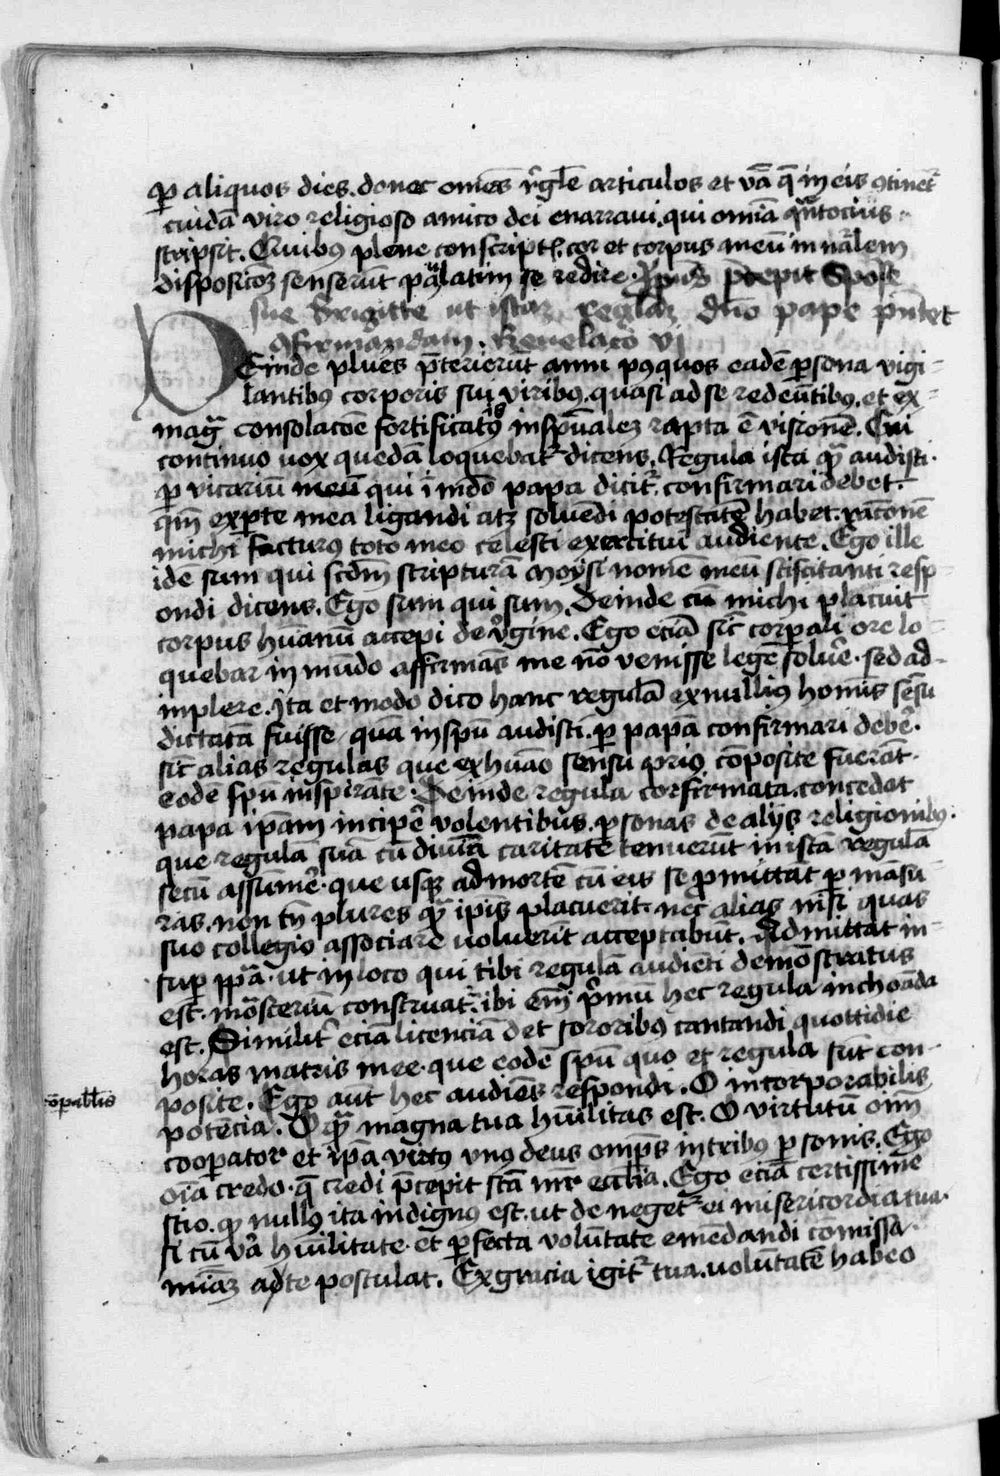 ꝑ aliquos dies. donec om̄es rͥgl̄e articulos et v̄ba q̄ in eis ꝯtinētͬ
cuidā viro religioso amico dei enarraui. qui om̄ia qͣntocius
scripsit. Quibꝰ plene conscriptͥ. cor et corpus meū in nāˡem
disposicōꝫ senserūt paulatim se redire. Xp̄us p̄cepit Spōse
sue Brigitte ut istaꝫ reglaꝫ dn̄o pape pn̄tet
ꝯfirmandam. Reuelacō vj
DEinde plu̾es p̄terierūt anni pꝰ quos eadē ꝑsona vigi-
lantibꝰ corporis sui viribꝰ. quasi ad se redeūtibꝰ. et ex-
magͣ consolacōe fortificatꝰ in spūaleꝫ rapta ē visionē. Cui
continuo uox quedā loquebatͬ dicens. Regula ista qͣm audisti.
ꝑ vicariū meū qui ī mūdo papa dicitͬ. confirmari debet.
qm̄ ex ꝑte mea ligandi atqꝫ soluēdi potestatē habet. rac̄onē
michi facturꝰ toto meo celesti exercitui audiente. Ego ille
idē sum qui scdm̄ scripturā Moysi nomē meū sciscitanti resp-
ondi dicens. Ego sum qui sum. Deinde cū michi placuit
corpus hūanū accepi de vͥgine. Ego eciā sic̄ corꝑali ore lo-
quebar in mūdo affirmās me nō venisse legē soluͤre. sed ad-
implere. Ita et modo dico hanc regulā ex nulliꝰ homīs sēsu
dictatā fuisse. quā in spū audisti. ꝑ papā confirmari debeͤ.
sic̄ alias regulas que ex hūāo sensu priꝰ cōposite fuerāt.
eodē spū inspirāte. Deinde regula confirmata. concedat
papa ip̄am incipeͤ volentibus. ꝑsonas de alijs religionibꝰ.
que regulā suā cū diuīa caritate tenuerūt in istā regulā
secū assūmeͤ. que usqꝫ ad mortē cū eis se ꝓmittāt ꝑmāsu-
ras. non tn̄ plures qͣm ip̄is placuerit. nec alias nisi quas
suo collegio associare uoluerīt acceptabūt. Admittat in-
suꝑ pp̄a. ut in loco qui tibi regulā audiēti demōstratus
est. mōasteriū construatͬ. ibi em̄ pͥmū hec regula inchoāda
est. Similitͤ eciā licenciā det sororibꝰ cantandi quottidie
horas matris mee. que eodē spū quo et regula sūt con-
posite. Ego aūt hec audiēs respondi. O incorporabilis
potēcia. O qͣm magna tua hūilitas est. O virtutū oīm
cooꝑator et ip̄a virtꝰ vnꝰ deus omp̄s in tribꝰ ꝑsonis. Ego
oīa credo. q̄ credi p̄cepit sc̄a mr̄ ecc̄lia. Ego eciā certissime
scio. qꝫ nullꝰ ita indignꝰ est. ut denegetͬ ei misericordia tua.
si cū vͤa hūilitate. et ꝑfecta volūtate emēdandi cōmissa
mīaꝫ a te postulat. Ex gracia igitͬ tua. uolūtatē habeo